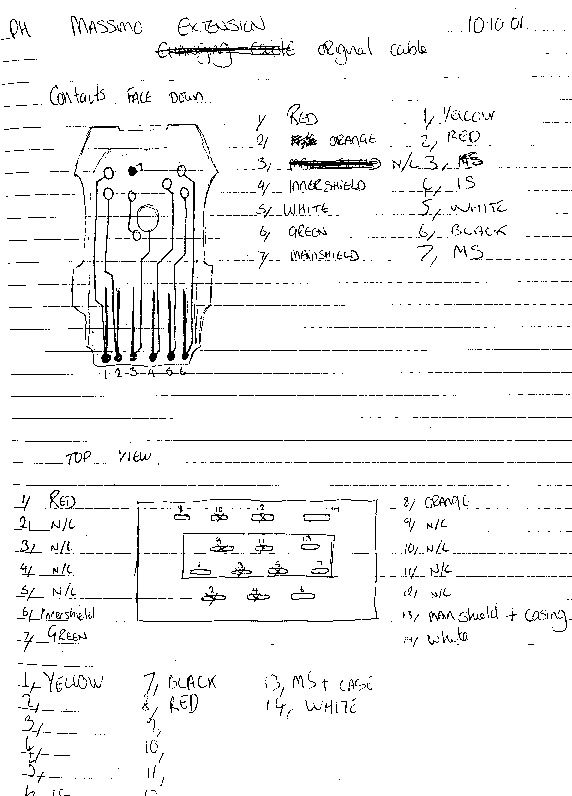 PH MASSIMO EXTENSION 10.10.01
original cable
Contacts FACE DOWN
1, RED 1, YELLOW
2, ORANGE 2, RED
3, N/C 3, MS
4, INNERSHIELD 4, IS
5, WHITE 5, WHITE
6, GREEN 6, BLACK
7, MAINSHIELD 7, MS
1 2 3 4 5 6
TOP VIEW
1, RED 8, ORANGE
2, N/C 9, N/C
3, N/C 10, N/C
4, N/C 11, N/C
5, N/C 12, N/C
6, innershield 13, MAIN shield + casing
7, GREEN 14, White
1, YELLOW 7, BLACK 13, MS + CASE
2, 8, RED 14, WHITE
3, 9,
4, 10,
5, 11,